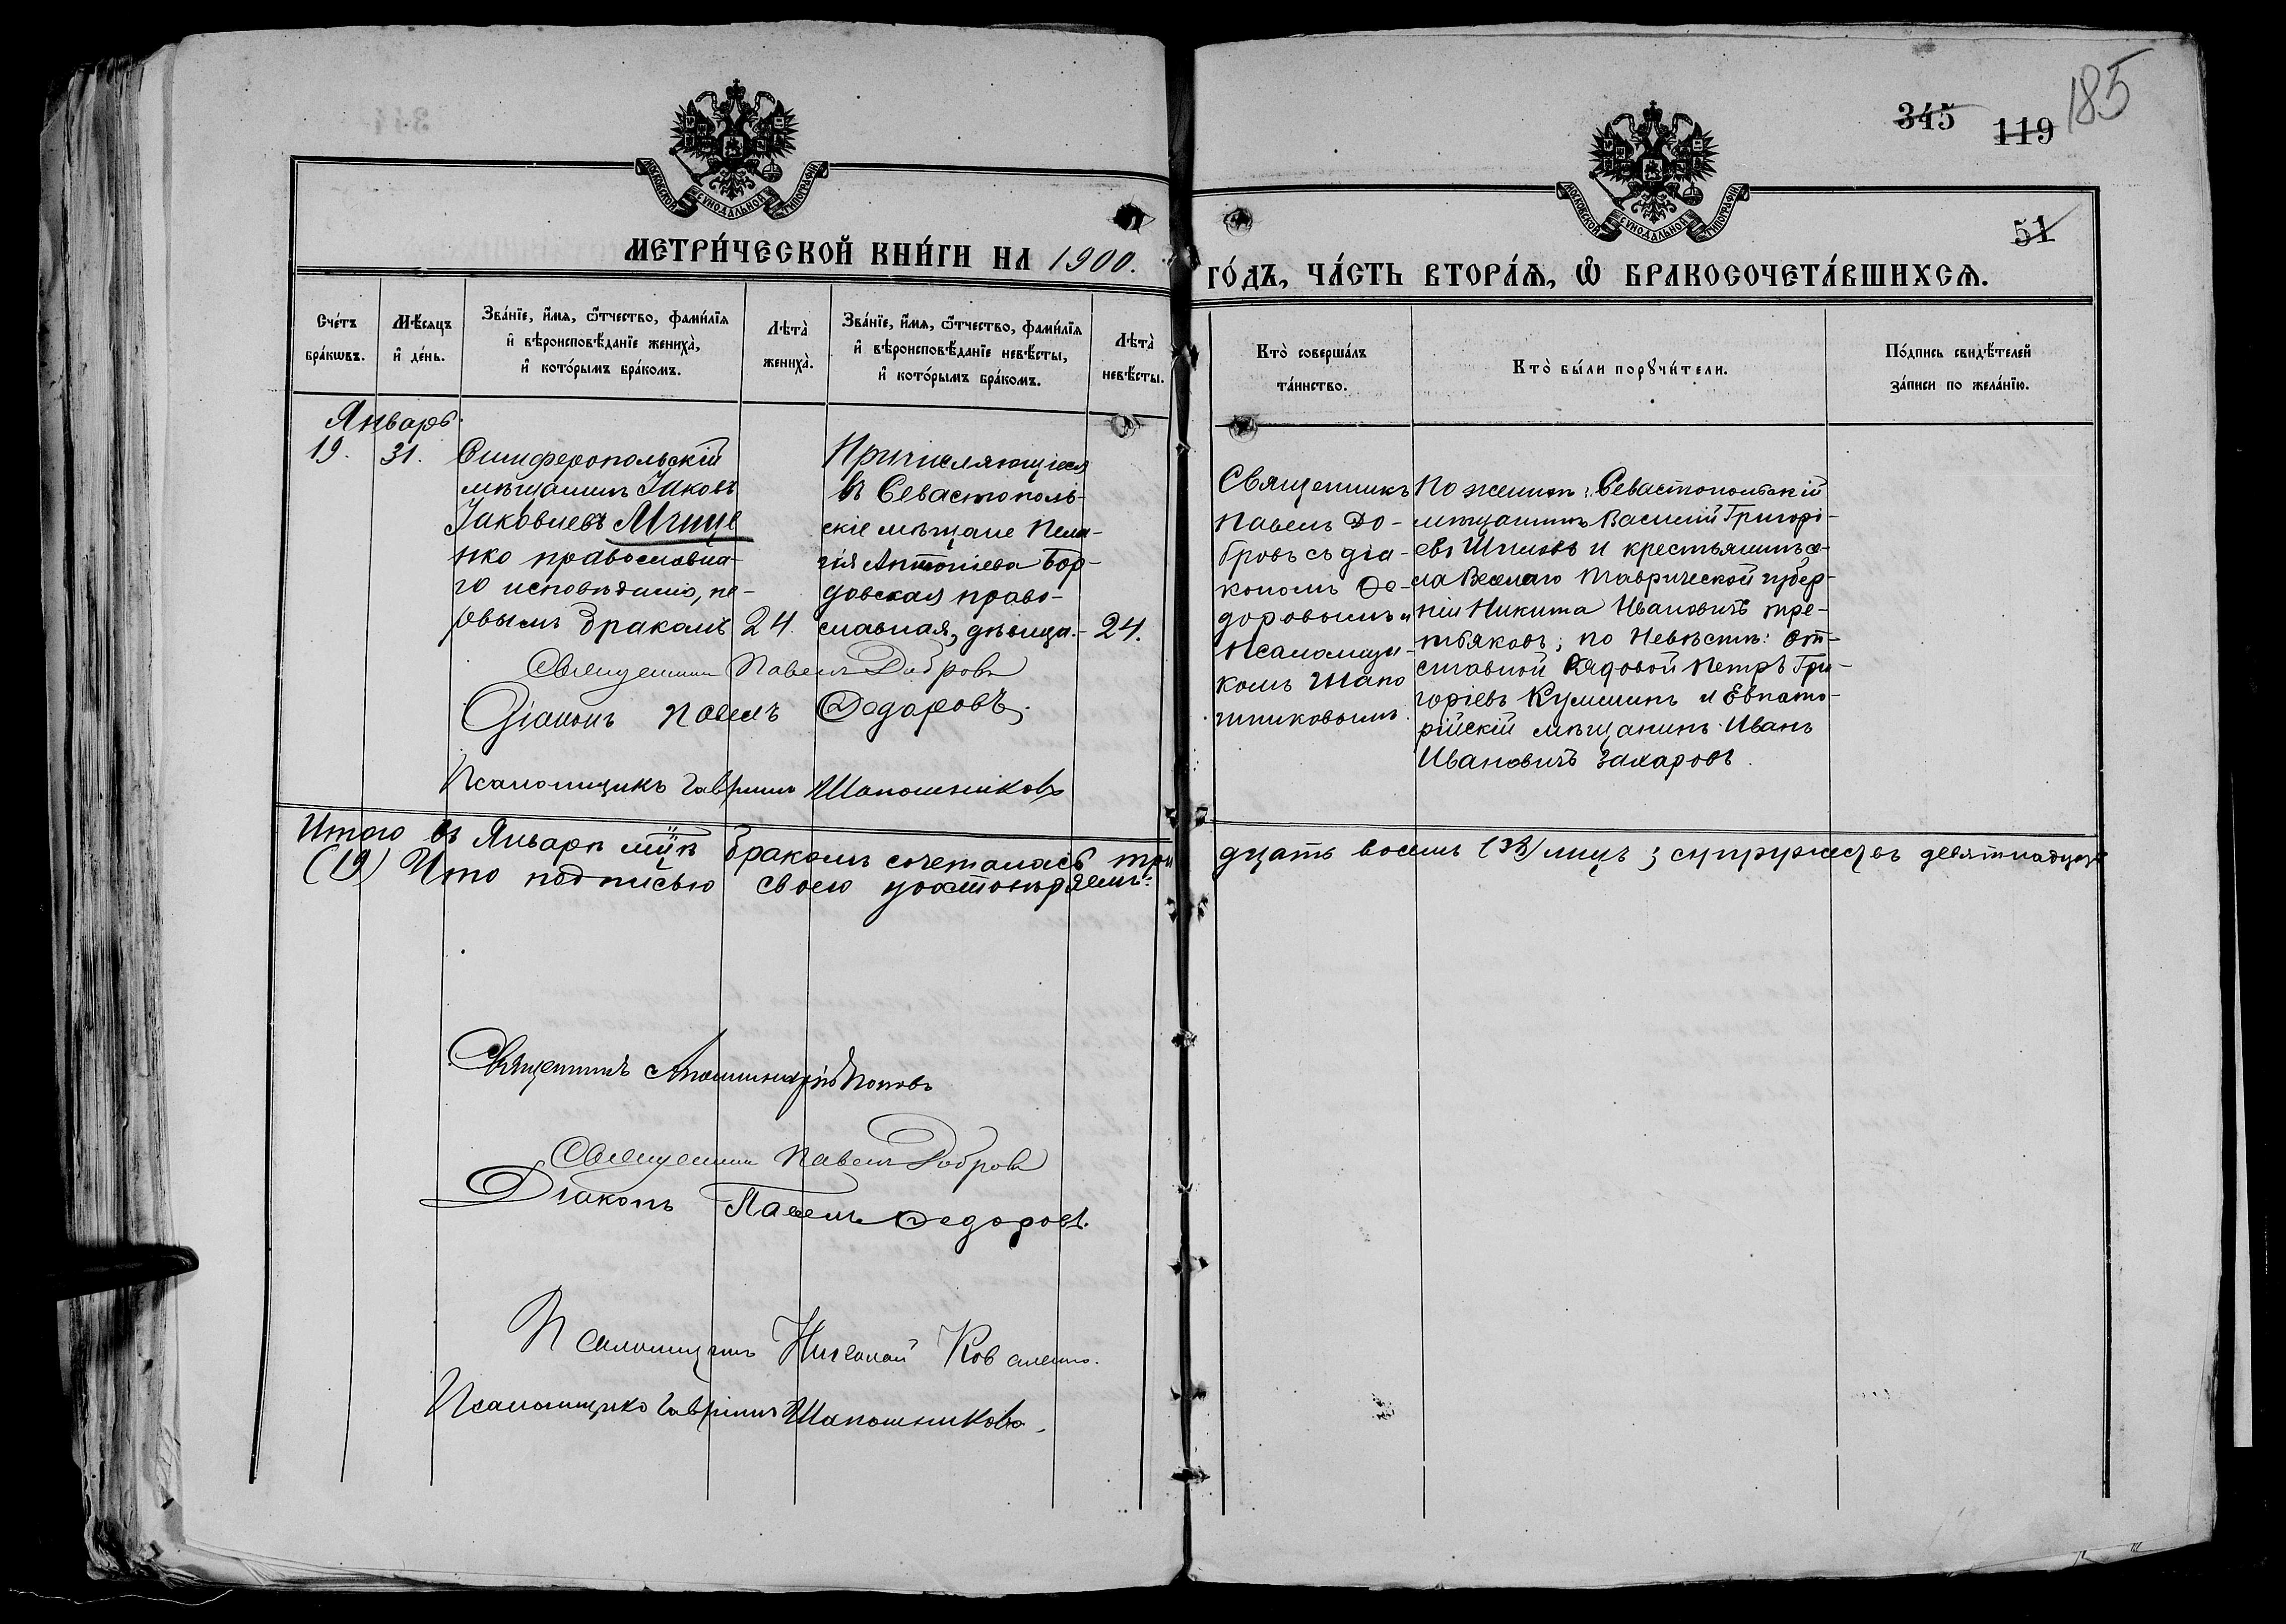 345 119 185
51
МОСКОВСКОЙ СѴНОДАЛЬНОЙ ТИПОГРАФІИ
МОСКОВСКОЙ СѴНОДАЛЬНОЙ ТИПОГРАФІИ
МЕТРИ́ЧЕСКОЙ КНИ́ГИ НА 1900.
ГО́ДЪ, ЧА́СТЬ ВТОРА́Ѧ, Ѽ БРАКОСОЧЕТА́ВШИХСѦ.
Сче́тъ
бра́кѡвъ.
Мѣ́сяцъ
и҆ де́нь.
Зва́нїе, и҆́мѧ, ѻ҆́тчество, фами́лїѧ
и҆ вѣроисповѣ́данїе жениха̀,
и҆ кото́рымъ бра́комъ.
Лѣта̀
жениха̀.
Зва́нїе, и҆́мѧ, ѻ҆́тчество, фами́лїѧ
и҆ вѣроисповѣ́данїе невѣ́сты,
и҆ кото́рымъ бра́комъ.
Лѣта̀
невѣ́сты.
Кто̀ соверша́лъ
та́инство.
Кто̀ бы́ли порꙋчи́тели.
По́дпись свидѣ́телей
за́писи по жела́нїю.
Январь.
19. 31.
Симферопольскій
мѣщанинъ Іаковъ
Іаковлевъ Мище
нко православна-
го исповѣданія, пе-
рвымъ бракомъ
24.
Причисляющіеся
въ Севастополь-
скіе мѣщане Пела-
гія Антоніева Бор-
довская право-
славная, дѣвица.
24.
Священникъ
Павелъ До-
бровъ съ діа-
кономъ Ѳе-
доровымъ и
псаломщи-
комъ Шапо
шниковымъ.
По женихѣ: Севастопольскій
мѣщанинъ Василій Григорі-
евъ Шпиовъ и крестьянинъ се-
ла Веселаго Таврической губер-
ніи Никита Ивановичъ Тре-
тьяковъ; по невѣстѣ: от-
ставной рядовой Петръ Гри-
горіевъ Кулишинъ и Евпато-
рійскій мѣщанинъ Иванъ
Ивановичъ Захаровъ.
Священникъ Павелъ Добровъ
Діаконъ Павелъ Ѳедоровъ.
Псаломщикъ Гавріилъ Шапошниковъ
Итого въ Январѣ мцѣ бракомъ сочеталось три
дцать восемь (38) лицъ; супружествъ девятнадцать
(19) Что подписью своею удостовѣряемъ:
Священникъ Аполлинарій Поповъ
Священникъ Павелъ Добровъ
Діаконъ Павелъ Ѳедоровъ.
Псаломщикъ Николай Коваленко.
Псаломщикъ Гавріилъ Шапошниковъ.